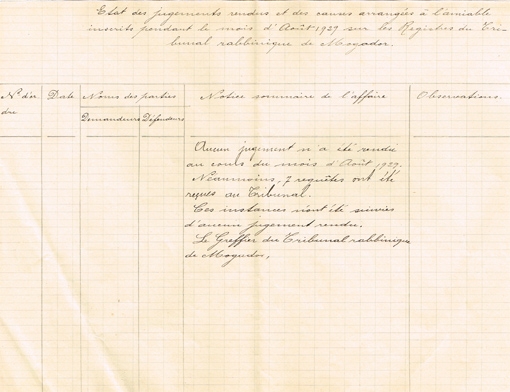 Etat des jugements rendus et des causes arrangées à l'amiable
inscrits pendant le mois d'Août 1929 sur les Registres du Tri-
bunal rabbinique de Mogador.
N° d'or
dre
Date
Noms des parties
Demandeurs
Défendeurs
Notice sommaire de l'affaire
Observations.
Aucun jugement n'a été rendu
au cours du mois d'Août 1929.
Néanmoins, 7 requêtes ont été
reçues au Tribunal.
Ces instances n'ont été suivies
d'aucun jugement rendu.
Le Greffier du Tribunal rabbinique
de Mogador,